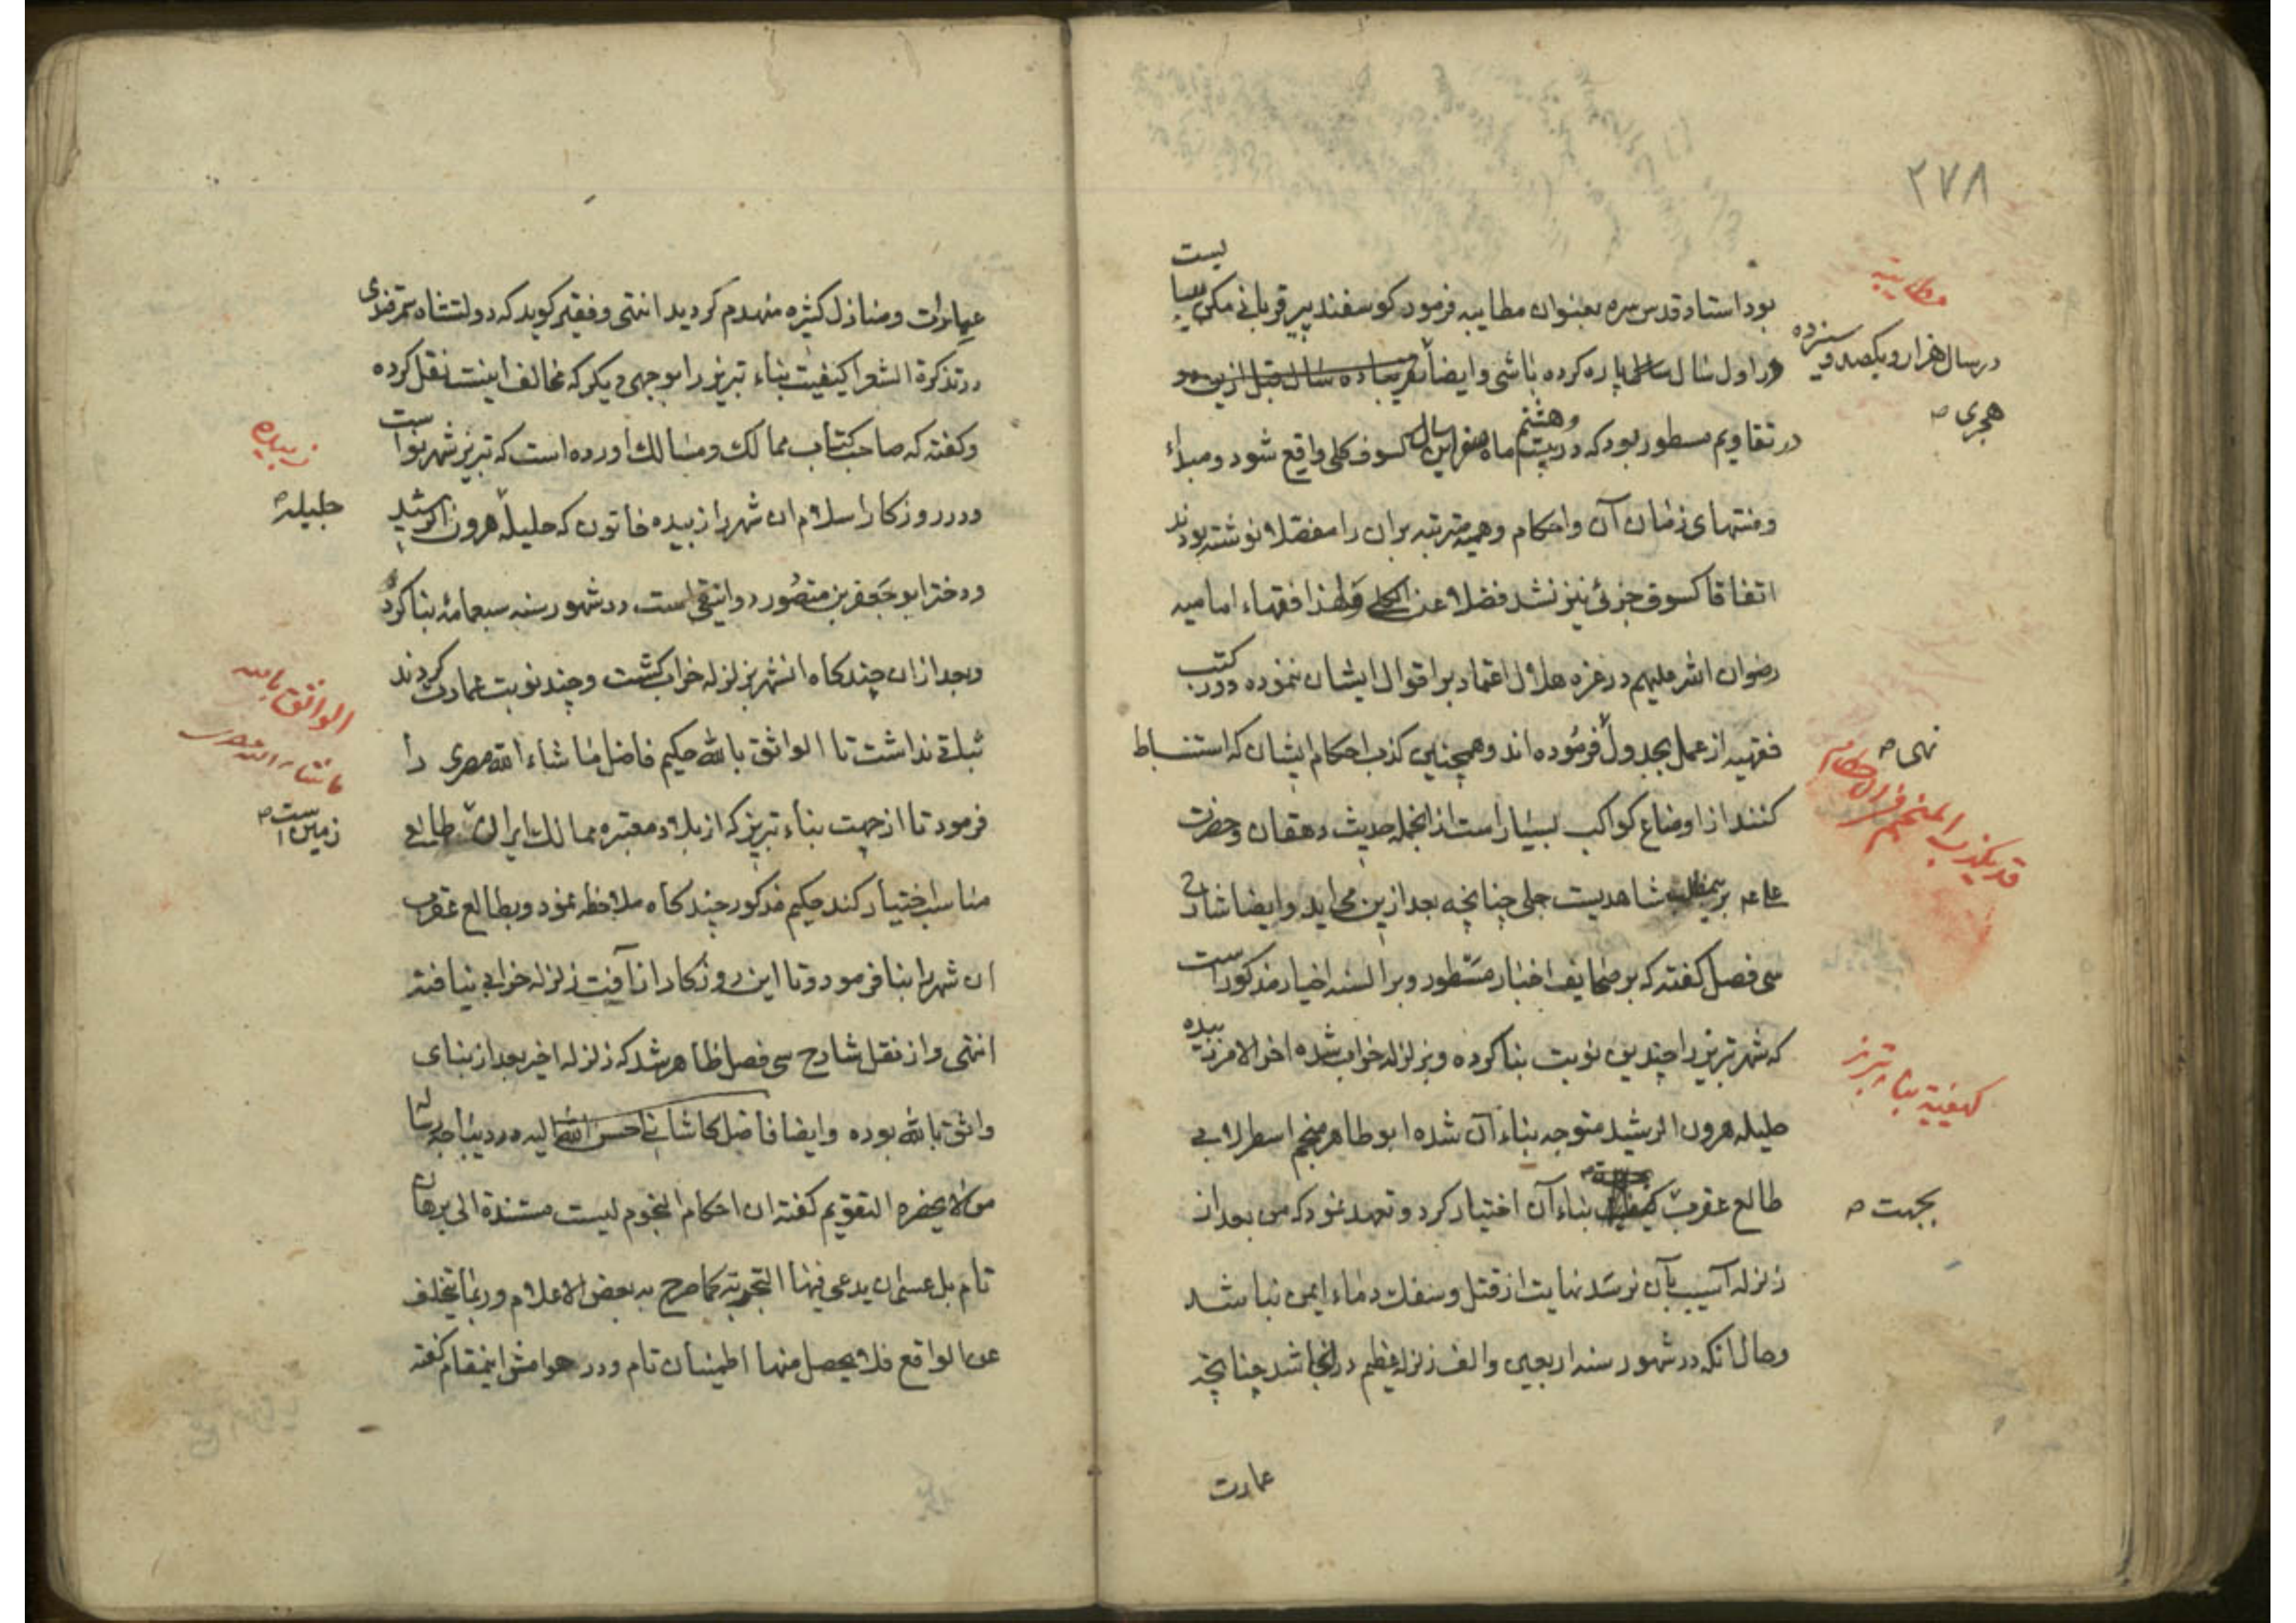 ۲۷۸
بود استاد قدس سره بعنوان مطایبه فرمود کوسفند پیر قربانی مکن
در اول سال پاره کرده باشی وایضا تقریبا ده سال قبل ازین
در سال هزار ویکصد و سیزده
هجری
در تقاویم مسطور بود که در بیست وهشتم ماه صفر این سال کسوف کلی واقع شود ومبداء
ومنتهای زمان آن واحکام وهمیه مترتبه بران را مفصلا نوشته بودند
اتفاقا کسوف جزئی نیز نشد فضلا عن الکلی ولهذا فقهاء امامیه
رضوان الله علیهم در غره هلال اعتماد بر اقوال ایشان ننموده ودر کتب
فقهیه از عمل بجدول فرموده اند وهمچنین کذب احکام ایشان که استنباط
نهی
کنند از اوضاع کواکب بسیار است از انجمله حدیث دهقان وحضرت
قد یکذب المنجم فی الاحکام
شاهدیست جلی چنانچه بعد ازین می اید وایضا شارح
سی فصل کفته که بر صحایف اخبار مسطور وبر السنه اخیار مذکور است
که شهر تبریز را چندین نوبت بنا کرده وبزلزله خراب شده اخر الامر زبیده
کیفیة بناء تبریز
حلیله هرون الرشید متوجه بناء آن شده ابو طاهر منجم اسطرلابی
طالع عقرب بناء آن اختیار کرد وتعهد نمود که من بعد از
بجهت
زلزله آسیب بآن نرسد نهایت از قتل وسفک دماء ایمن نباشد
وحال انکه در شهور سنه اربعین والف زلزله عظیم در انجا شد چنانچه
عمارت
عمارات ومنازل کثیره منهدم کردید انتهی وفقیر کوید که دولتشاه سمرقندی
در تذکرة الشعرا کیفیت بناء تبریز را بوجهی دیکر که مخالف اینست نقل کرده
وکفته که صاحب کتاب ممالک ومسالک اورده است که تبریز شهر نو است
زبیده
ودر روزکار اسلام ان شهر را زبیده خاتون که حلیله هرون الرشید
جلیله
ودختر ابو جعفر بن منصور دوانیقی است در شهور سنه سبعمائه بنا کرد
وبعد از ان چند کاه انشهر بزلزله خراب کشت وچند نوبت عمارت کردند
الواثق بالله
ثباتی نداشت تا الواثق بالله حکیم فاضل ماشاء الله مصری را
ماشاء الله مصری
فرمود تا از جهت بناء تبریز که از بلاد معتبره ممالک ایران طالعی
زمین است
مناسب اختیار کند حکیم مذکور چند کاه ملاحظه نمود وبطالع عقرب
ان شهر را بنا فرمود وتا این روزکار از آفت زلزله خرابی نیافته
انتهی واز نقل شارح سی فصل ظاهر شد که زلزله اخیر بعد از بنای
واثق بالله بوده وایضا فاضل کاشانی احسن الله الیه در دیباجه رساله
من لا یحضره التقویم کفته ان احکام النجوم لیست مستندة الی برهان
تام بل عسی ان یدعی فیها التجربة کما صرح به بعض الاعلام وربما یتخلف
عن الواقع فلا یحصل منها اطمینان تام ودر هوامش اینمقام کفته